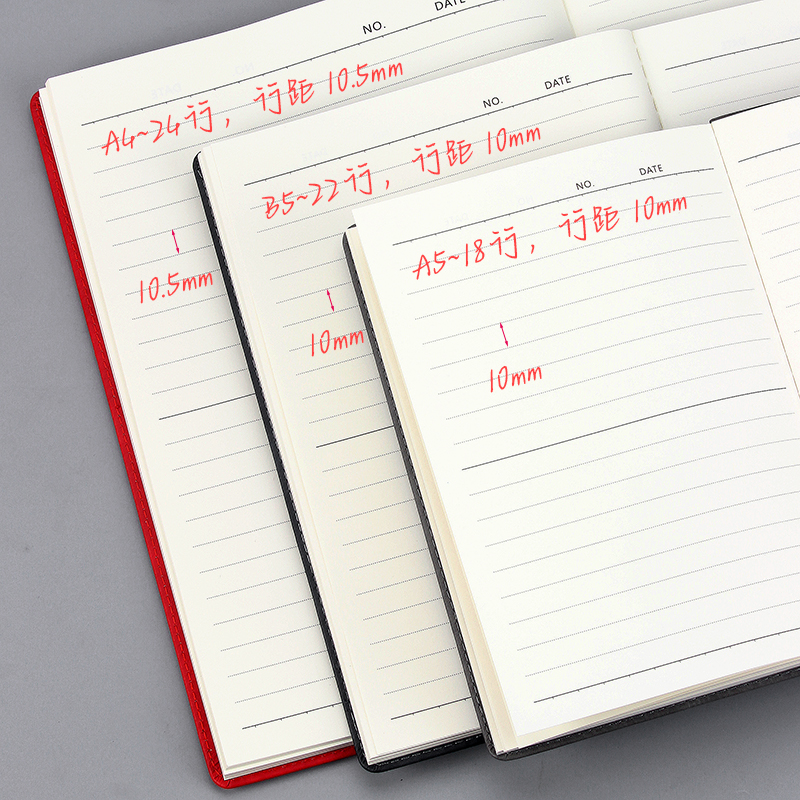 NO. DATE
A4~24行，行距 10.5mm
10.5mm
NO. DATE
B5~22行，行距 10mm
10mm
NO. DATE
A5~18行，行距 10mm
10mm